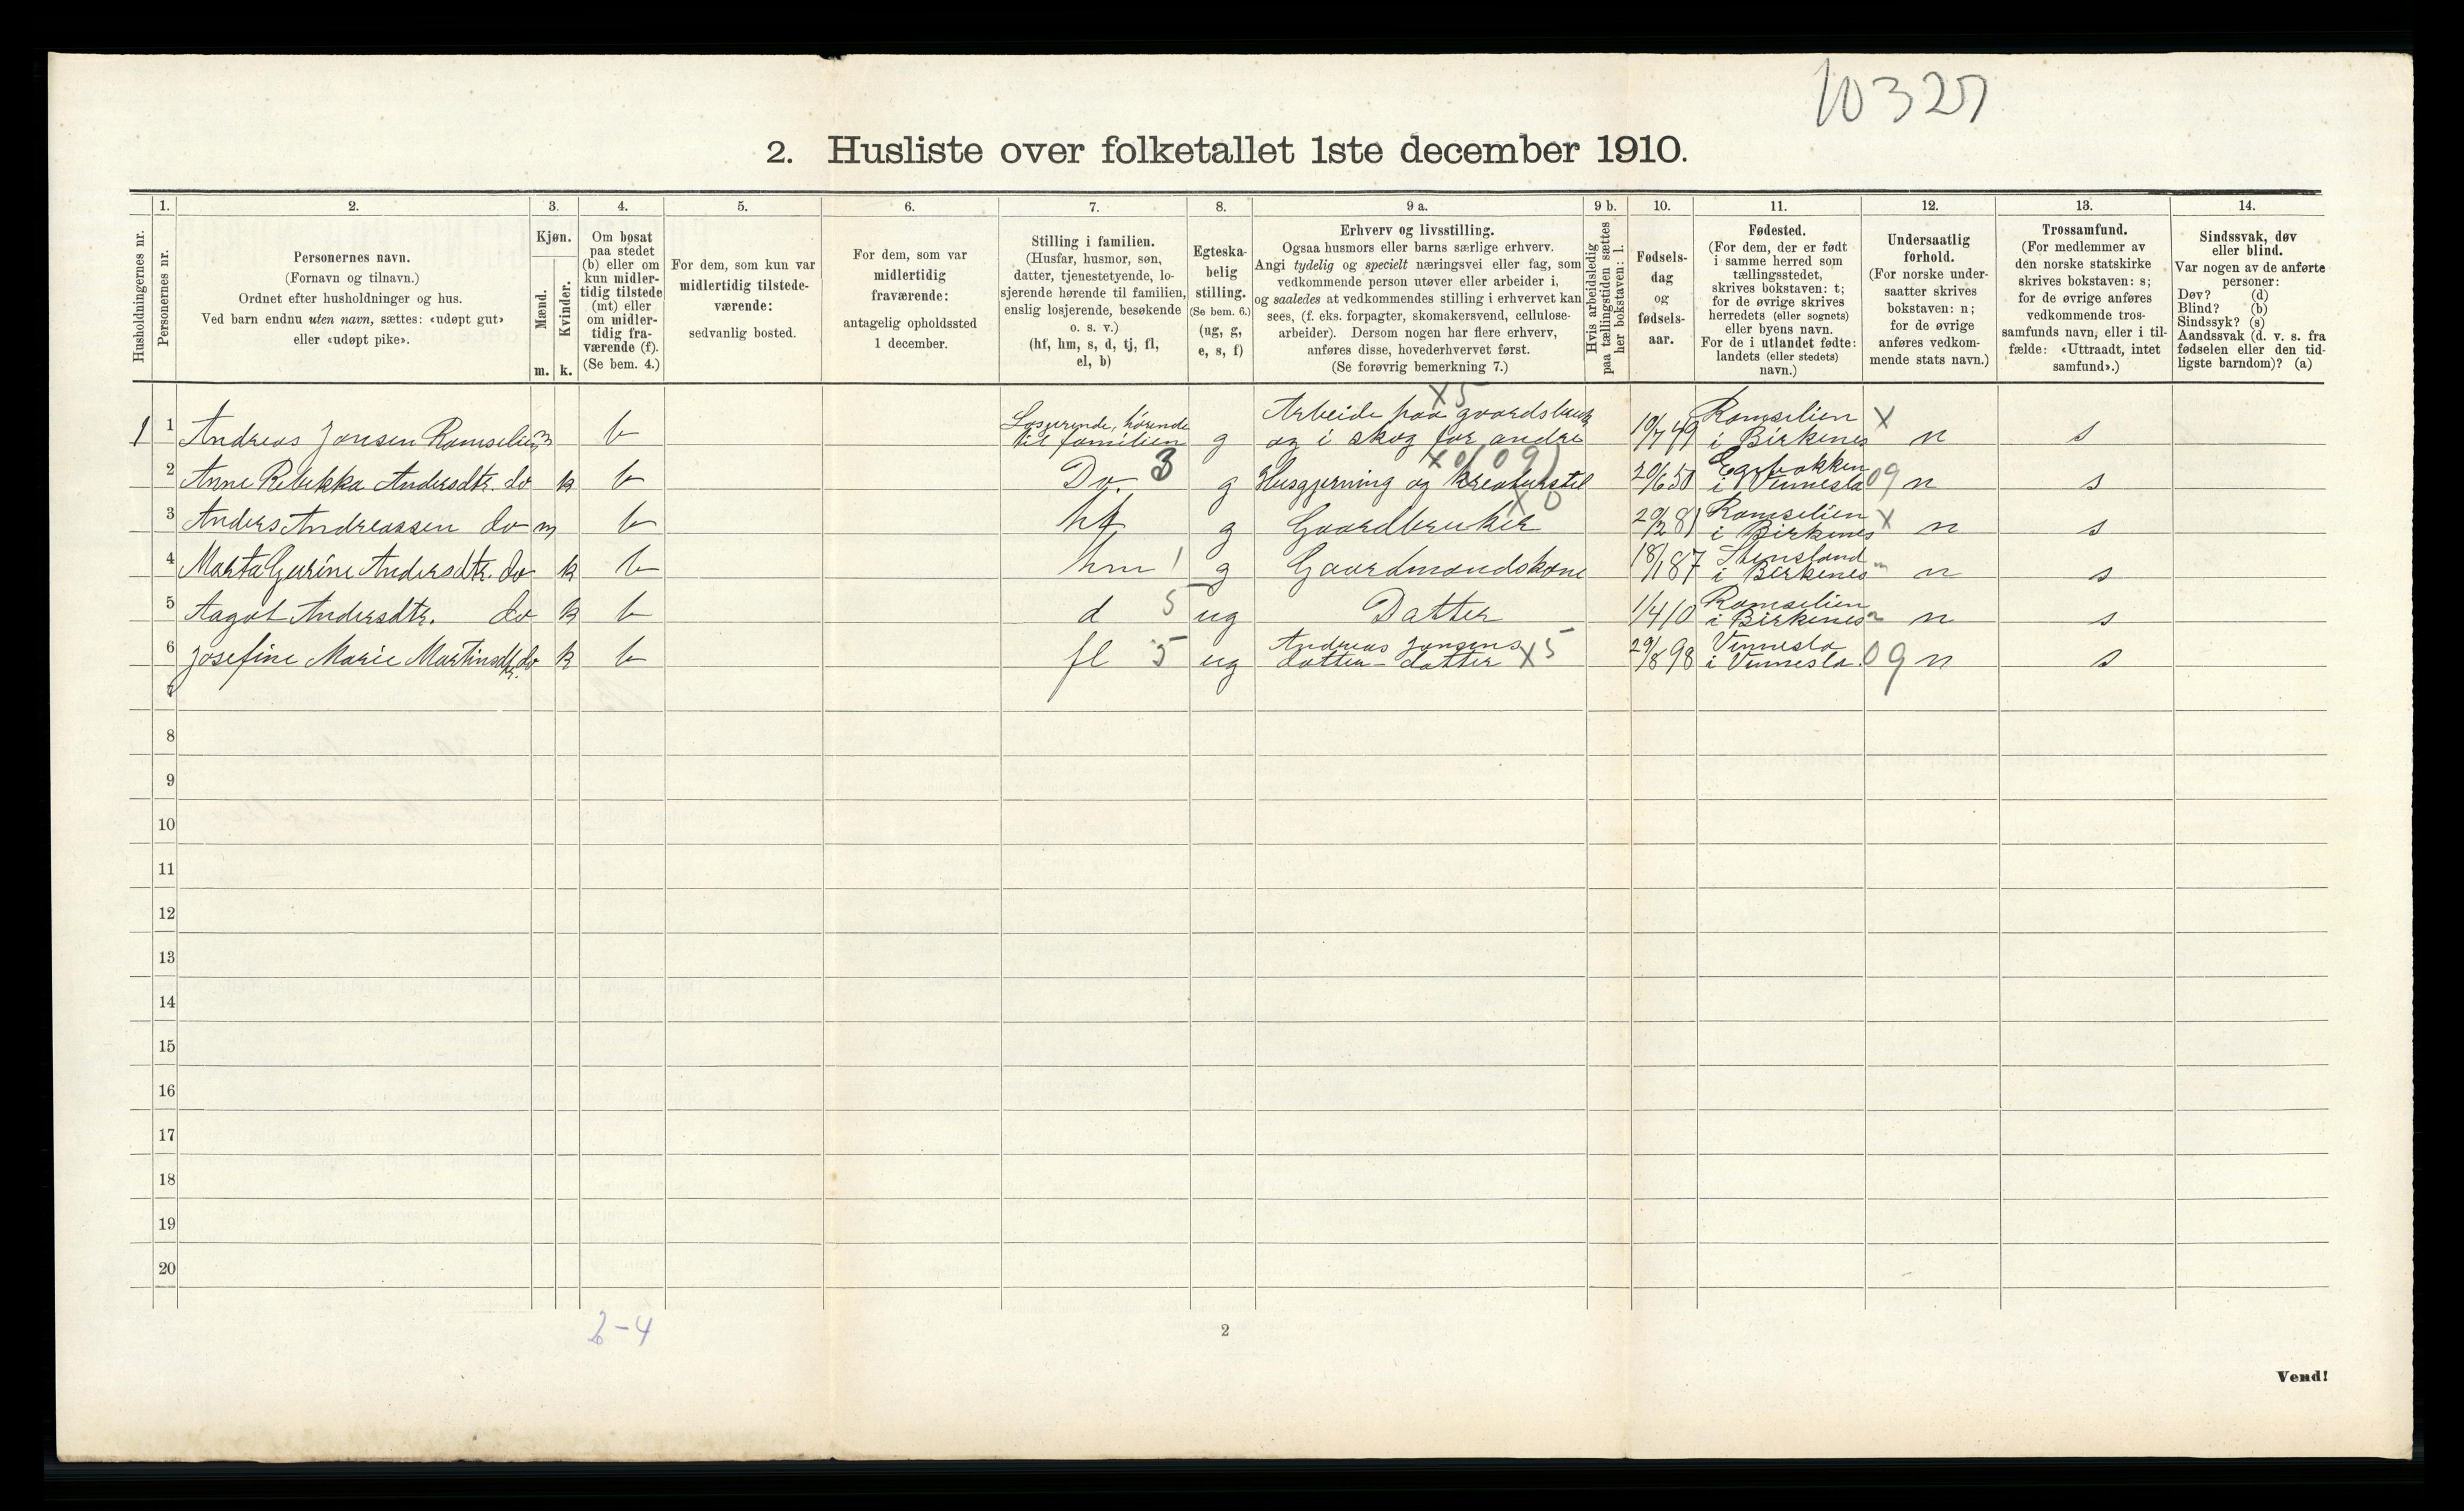 10327
2. Husliste over folketallet 1ste december 1910.
Husholdningernes nr.
1.
Personernes nr.
2.
Personernes navn.
(Fornavn og tilnavn.)
Ordnet efter husholdninger og hus.
Ved barn endnu uten navn, sættes: «udøpt gut»
eller «udøpt pike».
3.
Kjøn.
Mænd.
Kvinder.
m. k.
4.
Om bosat
paa stedet
(b) eller om
kun midler-
tidig tilstede
(mt) eller
om midler-
tidig fra-
værende (f).
(Se bem. 4.)
5.
For dem, som kun var
midlertidig tilstede-
værende:
sedvanlig bosted.
6.
For dem, som var
midlertidig
fraværende:
antagelig opholdssted
1 december.
7.
Stilling i familien.
(Husfar, husmor, søn,
datter, tjenestetyende, lo-
sjerende hørende til familien,
enslig losjerende, besøkende
o. s. v.)
(hf, hm, s, d, tj, fl,
el, b)
8.
Egteska-
belig
stilling.
(Se bem. 6.)
(ug, g,
e, s, f)
9 a.
Erhverv og livsstilling.
Ogsaa husmors eller barns særlige erhverv.
Angi tydelig og specielt næringsvei eller fag, som
vedkommende person utøver eller arbeider i,
og saaledes at vedkommendes stilling i erhvervet kan
sees, (f. eks. forpagter, skomakersvend, cellulose-
arbeider). Dersom nogen har flere erhverv,
anføres disse, hovederhvervet først.
(Se forøvrig bemerkning 7.)
9 b.
Hvis arbeidsledig
paa tællingstiden sættes
her bokstaven: l.
10.
Fødsels-
dag
og
fødsels-
aar.
11.
Fødested.
(For dem, der er født
i samme herred som
tællingsstedet,
skrives bokstaven: t;
for de øvrige skrives
herredets (eller sognets)
eller byens navn.
For de i utlandet fødte:
landets (eller stedets)
navn.)
12.
Undersaatlig
forhold.
(For norske under-
saatter skrives
bokstaven: n;
for de øvrige
anføres vedkom-
mende stats navn.)
13.
Trossamfund.
(For medlemmer av
den norske statskirke
skrives bokstaven: s;
for de øvrige anføres
vedkommende tros-
samfunds navn, eller i til-
fælde: «Uttraadt, intet
samfund».)
14.
Sindssvak, døv
eller blind.
Var nogen av de anførte
personer:
Døv? (d)
Blind? (b)
Sindssyk? (s)
Aandssvak (d. v. s. fra
fødselen eller den tid-
ligste barndom)? (a)
1 1 Andreas Jonsen Ramselien m b Losjerende, hørende til familien g Arbeide paa gaardsbruk og i skog for andre X5 10/7 49 Ramselien i Birkenes X n s
2 Anne Rebekka Andersdtr. do k b Do. 3 g Husgjerning og kreaturstel 20/6 50 i Vennesla 09 n s
3 Anders Andreassen do m b hf g Gaardbruker X0 29/2 81 Ramselien i Birkenes X n s
4 Marta Gurine Andersdtr. do k b hm 1 g Gaardmandskone 18/1 87 Stensland i Birkenes n s
5 Aagot Andersdtr. do k b d 5 ug Datter 1/4 10 Ramselien i Birkenes n s
6 Josefine Marie Martinsdtr. do k b fl 5 ug Andreas Jonsens datter-datter X5 29/8 98 Vennesla i Vennesla 09 n s
7
8
9
10
11
12
13
14
15
16
17
18
19
20
2-4
2
Vend!